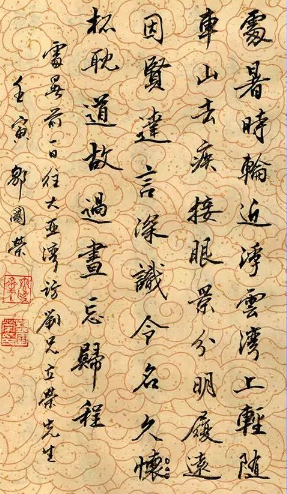 處暑時輪近浮雲灣上輕随
車山去疾接眼景分明履遠
因賢達言深識令名久懷
杯耽道故過晝忘歸程
處暑前一日往大亞灣訪劉兄立榮先生
壬寅 鄒國榮